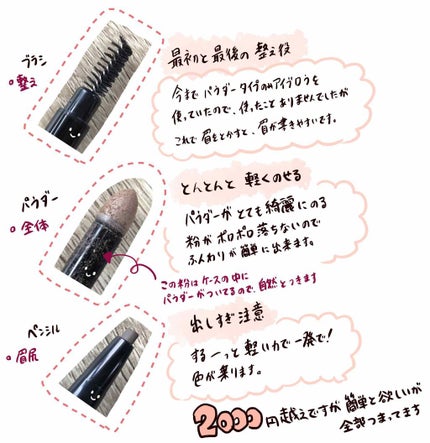 ブラシ
整え
最初と最後の整え役
今までパウダータイプのみアイブロウを
使っていたので、使ったことありませんでしたが
これで眉をとかすと、眉が書きやすいです。
パウダー
全体
とんとんと軽くのせる
パウダーがとても綺麗にのる
粉がポロポロ落ちないので
ふんわりが簡単に出来ます。
この粉はケースの中に
パウダーがついてるので、自然とつきます
ペンシル
眉尻
出しすぎ注意
するーっと軽い力で一発で!
色が乗ります。
2000円越えですが簡単と欲しいが
全部つまってます